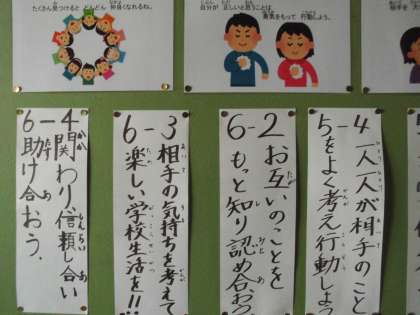 たくさん見つけると どんどん 仲良くなれるね。
自分が 正しいと思うことは
勇気をもって 行動しよう。
5-4
一人一人が相手のこと
をよく考え行動しよう
6-2
お互いのことを
もっと知り認め合おう
6-3
相手の気持ちを考えて
楽しい学校生活を!!
6-4
関わり、信頼し合い
助け合おう.